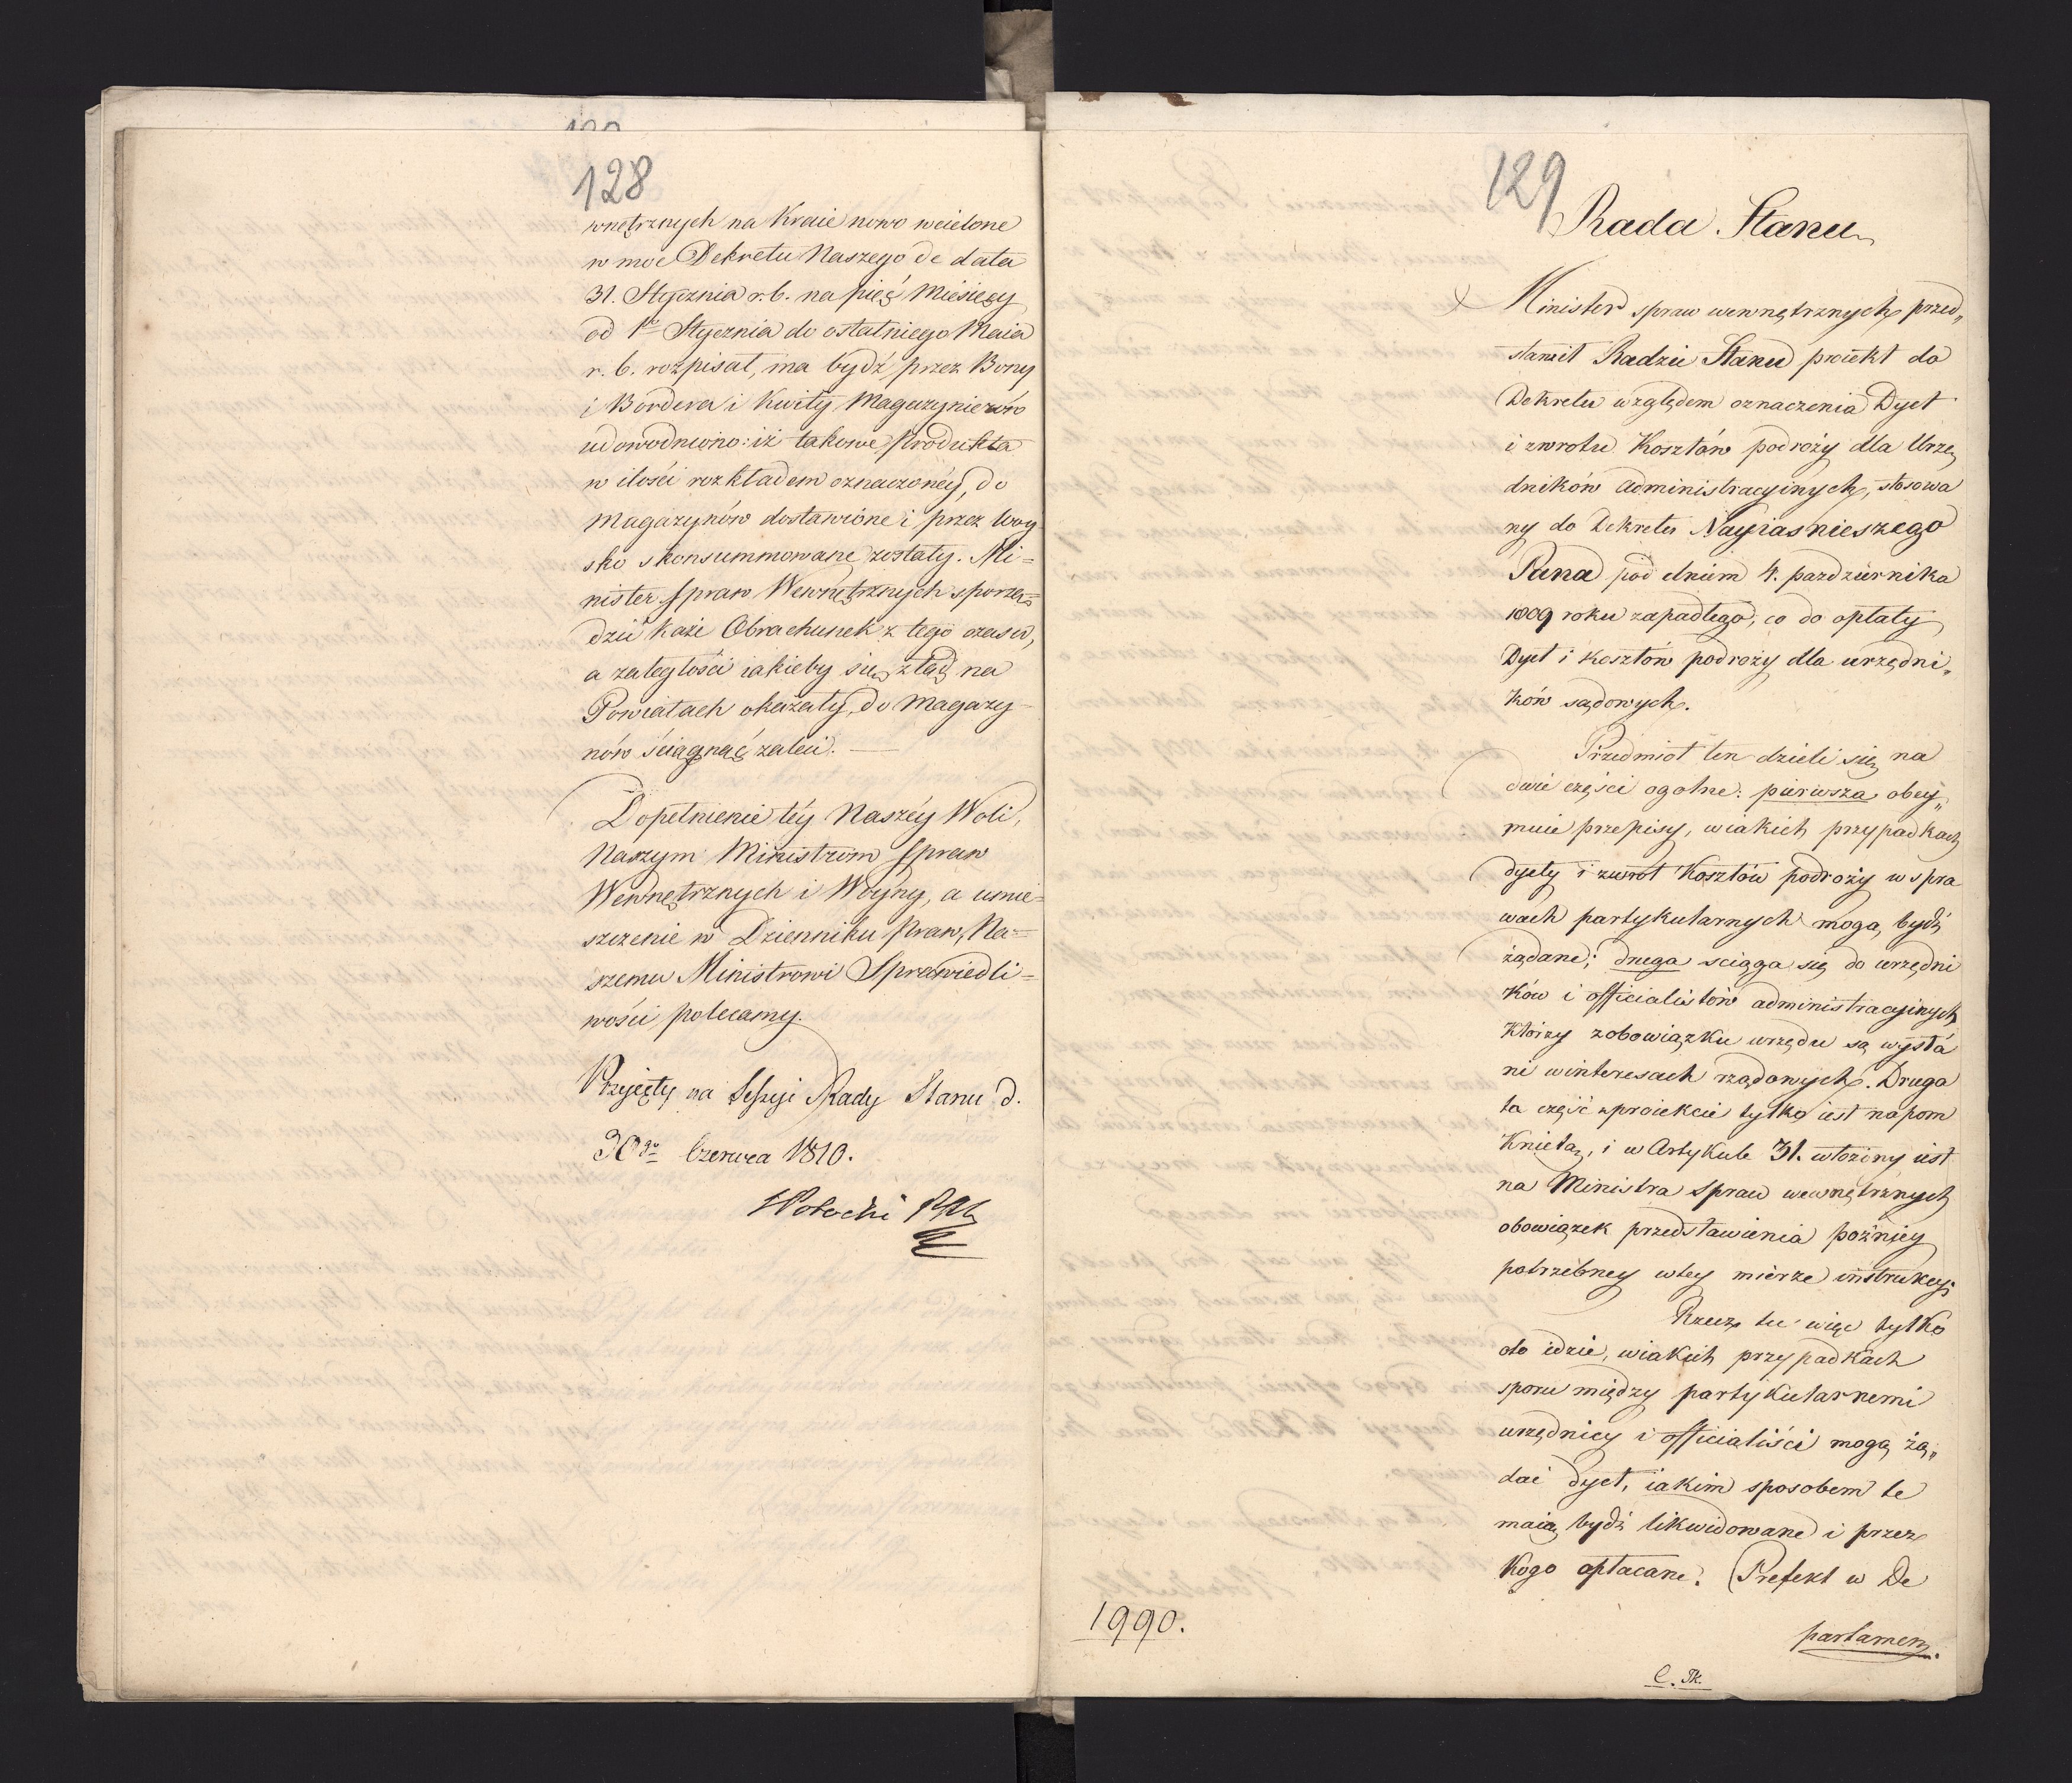 128
wnętrznych na Kraie nowo wcielone
w moc Dekretu Naszego de data
31. Stycznia r. b. na pięć Miesięcy
od 1go Stycznia do ostatniego Maia
r. b. rozpisał, ma bydź przez Bony
i Bordera i Kwity Magazynierów
udowodniono: iż takowe Produkta
w ilości rozkładem oznaczonéy, do
Magazynów dostawione i przez Woy
sko skonsummowane zostały. Mi=
nister Spraw Wewnętrznych sporzą=
dzić każe Obrachunek z tego czasu,
a zaległości iakieby się ztąd na
Powiatach okazały, do Magazy-
nów ściągnąć zaleci. —
Dopełnienie téy Naszéy Woli,
Naszym Ministrom Spraw
Wewnętrznych i Woyny, a umie=
szczenie w Dzienniku Praw, Na=
szemu Ministrowi Sprawiedli=
wości polecamy.
Przyięty na Sessyi Rady Stanu d.
30go Czerwca 1810.
129
Rada Stanu
Minister spraw wewnętrznych przed„
stawił Radzie Stanu proiekt do
Dekretu względem oznaczenia Dyet
i zwrotu Kosztów podroży dla Urzę
dników administracyinych, stosowa
ny do Dekretu Nayiasnieszego
Pana pod dniem 4. pazdziernika
1809 roku zapadłego, co do opłaty
Dyet i kosztów podroży dla urzędni„
ków sądowych.
Przedmiot ten dzieli się na
dwie części ogolne: pierwsza obey„
muie przepisy, w iakich przypadkach
dyety i zwrot Kosztów podroży w spra
wach partykularnych mogą bydź
żądane; druga sciąga się do urzędni
ków i officialistów administracyinych,
Którzy z obowiązku urzędu są wysła
ni w interesach rządowych. Druga
ta część w proiekcie tylko iest napom
Knięta, i w Artykule 31. włożony iest
na Ministra Spraw wewnętrznych
obowiązek przedstawienia pożniey
potrzebney w tey mierze instrukcyi
Rzecz tu więc tylko
oto idzie, w iakich przypadkach
sporu między partykularnemi
urzędnicy i officialiści mogą żą„
dać dyet, iakim sposobem te
maią bydź likwidowane i przez
Kogo opłacane. Prefekt w De
partamen.
1990.
C. Tk.